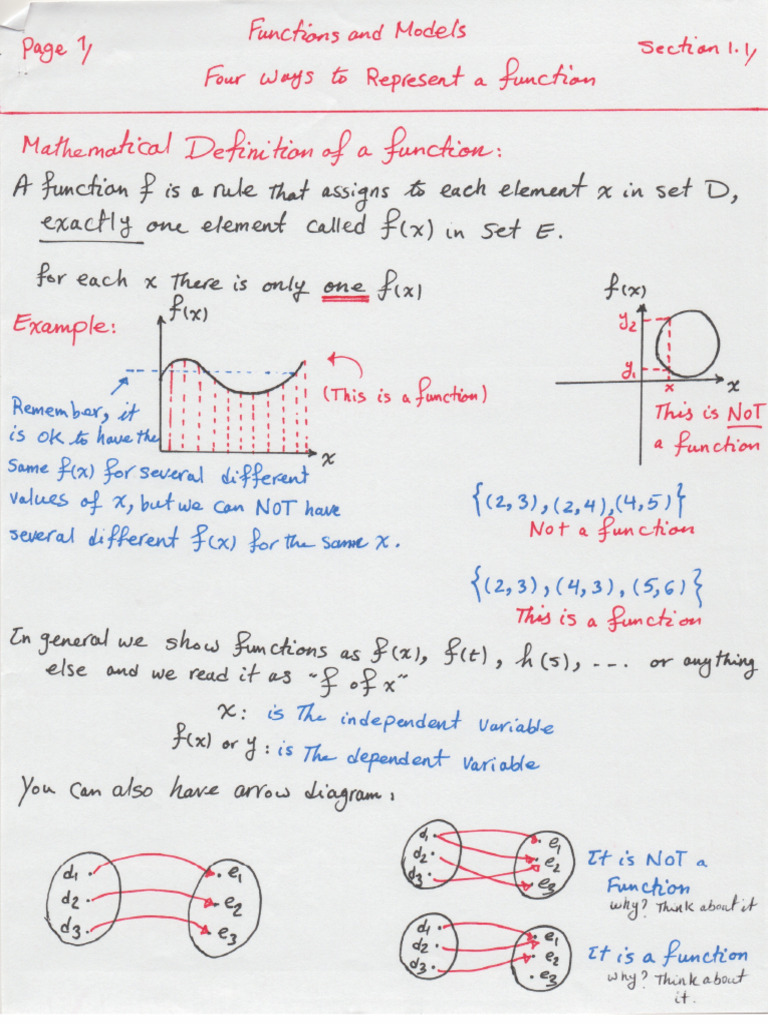 Page 1/
Functions and Models
Section 1.1/
Four Ways to Represent a function
Mathematical Definition of a function:
A function f is a rule that assigns to each element x in set D,
exactly one element called f(x) in Set E.
for each x There is only one f(x)
Example:
f(x)
x
(This is a function)
Remember, it
is OK to have the
same f(x) for several different
values of x, but we can NOT have
several different f(x) for the same x.
f(x)
y2
y1
x
x
This is NOT
a function
{(2,3),(2,4),(4,5)}
Not a function
{(2,3),(4,3),(5,6)}
This is a function
In general we show functions as f(x), f(t), h(s), .... or anything
else and we read it as "f of x"
x: is The independent variable
f(x) or y: is The dependent variable
You can also have arrow diagram:
d1
d2
d3
e1
e2
e3
d1
d2
d3
e1
e2
e3
It is NOT a
Function
why? Think about it
d1
d2
d3
e1
e2
e3
It is a function
why? Think about
it.